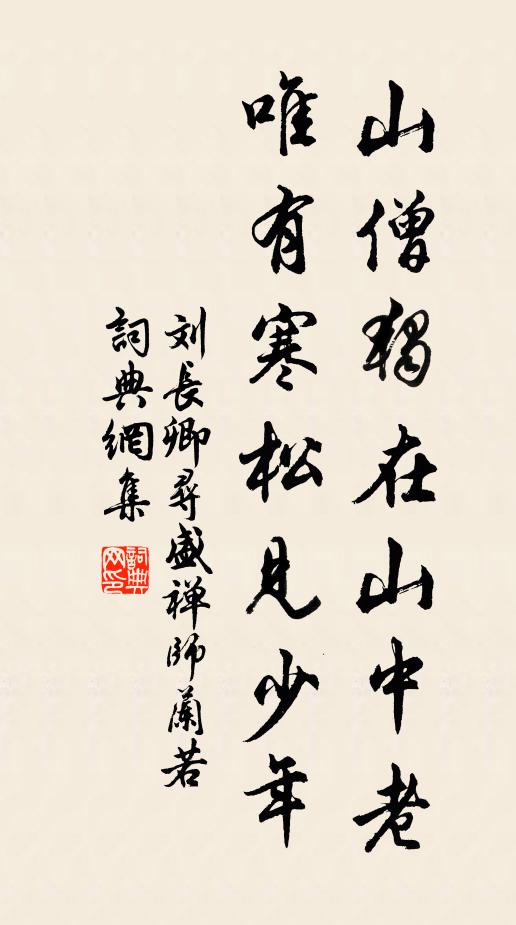 山僧独在山中老
唯有寒松见少年
刘長卿尋盛禅师蘭若
詞典網集
詞典网印